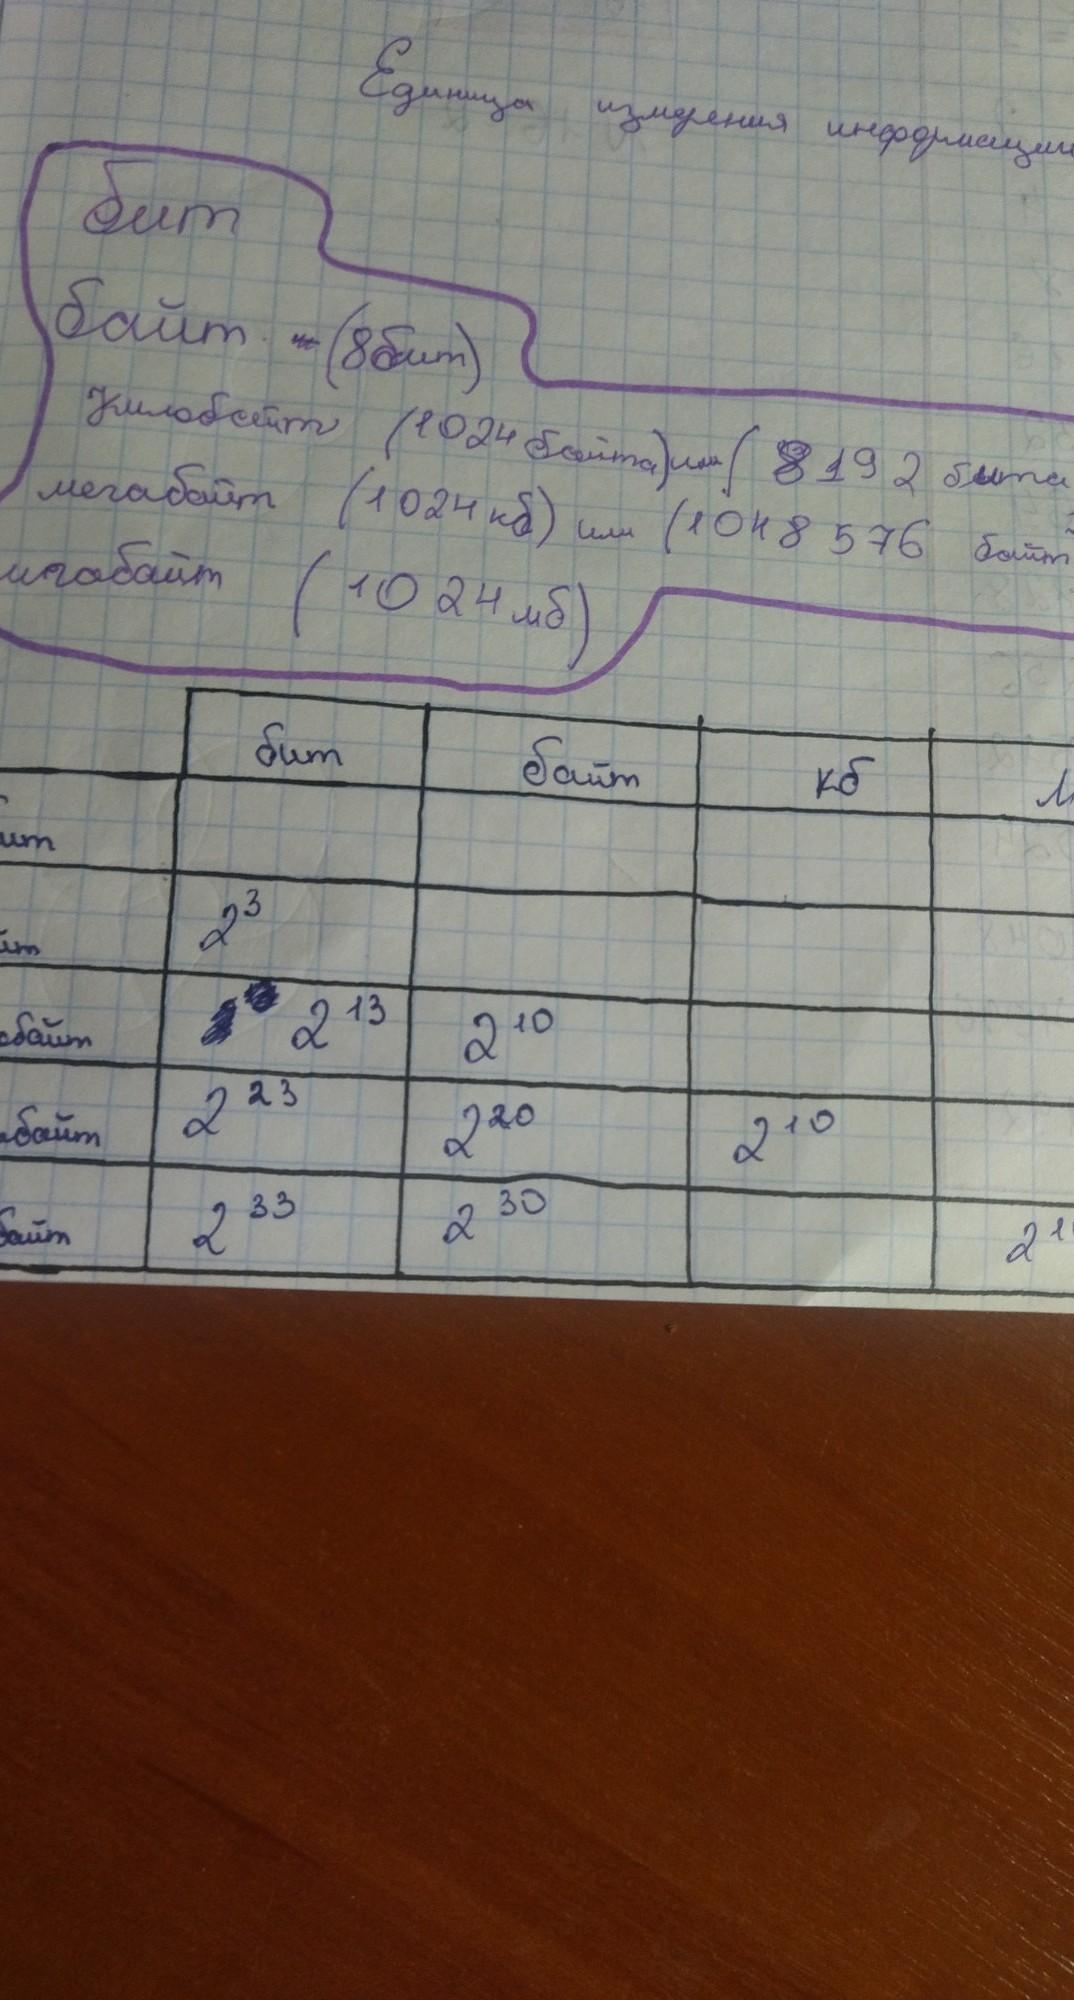 Единица измерения информации
бит
байт - (8бит)
Килобайт (1024 байта) или (8192 бита
мегабайт (1024 кб) или (1048 576 байт
игабайт (1024 мб)
бит байт кб М
ит
йт 2^3
обайт 2^13 2^10
абайт 2^23 2^20 2^10
байт 2^33 2^30 2^1